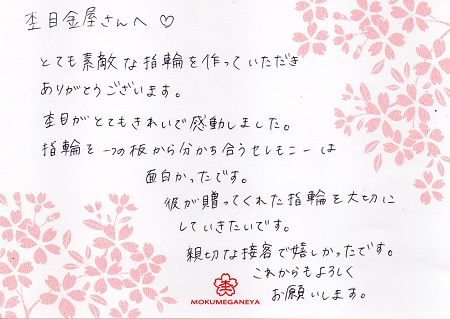 杢目金屋さんへ♡
とても素敵な指輪を作っていただき
ありがとうございます。
杢目がとてもきれいで感動しました。
指輪を一つの板から分かち合うセレモニーは
面白かったです。
彼が贈ってくれた指輪を大切に
していきたいです。
親切な接客で嬉しかったです。
これからもよろしく
お願いします。
杢
MOKUMEGANEYA